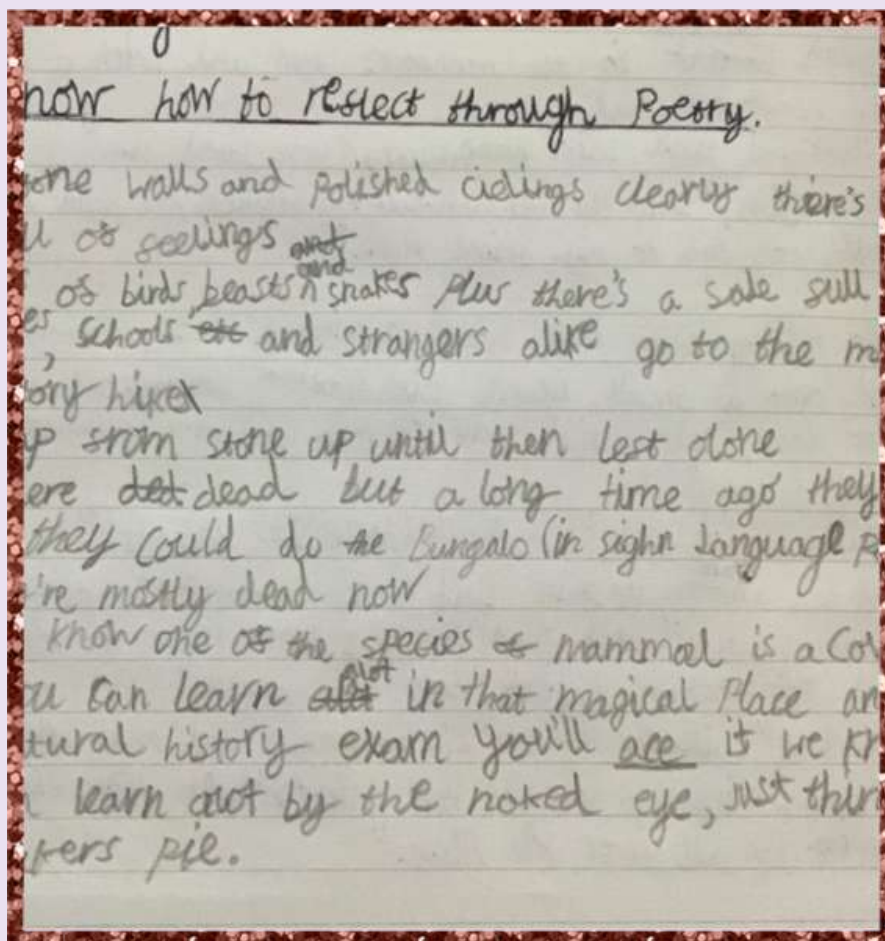 now how to reflect through Poetry.
one walls and polished cielings clearly there's
of feelings
of birds, beasts and snakes plus there's a
es, schools and strangers alike go to the m
ory hike
p from stone up until then left done
ere dead but a long time ago they
they could do the Bungalo (in sighn language
're mostly dead now
know one of the species of mammal is a Co
u can learn alot in that magical place an
tural history exam you'll ace if we kn
learn alot by the naked eye, just thin
kers pie.